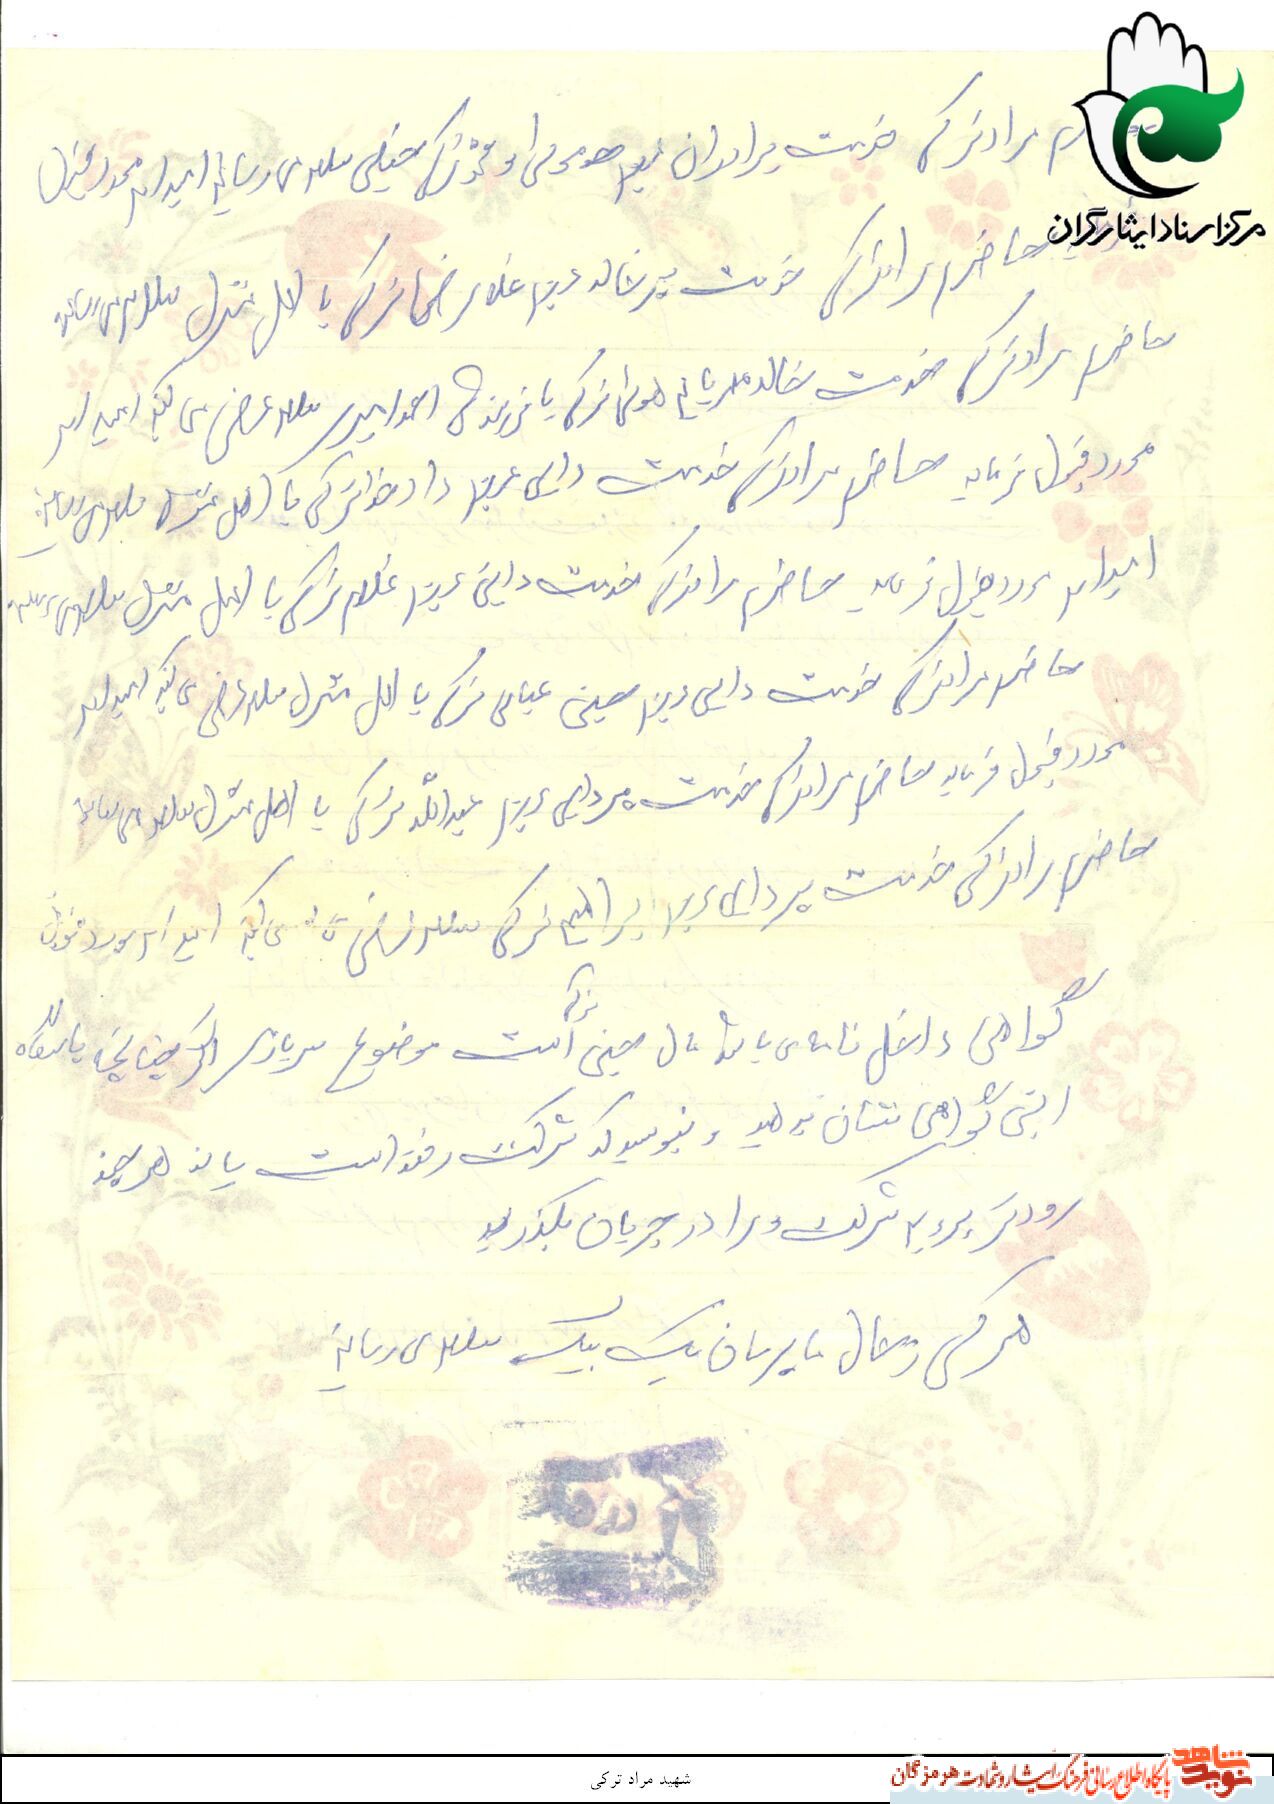 مرکز اسناد ایثارگران
مراد ترکی خدمت برادران عزیزم و محمد ترکی خیلی سلام می رسانم امیدوارم مورد قبول
حاضرم مراد ترکی خدمت پسرخاله عزیزم غلامرضا ترکی با اهل منزل سلام می رسانم
حاضرم مراد ترکی خدمت خاله مهربانم ترکی با فرزندش احمد سلام عرض می کنم امیدوارم
مورد قبول فرماید حاضرم مراد ترکی خدمت دایی عزیزم دادخدا ترکی با اهل منزل سلام می رسانم
امیدوارم مورد قبول فرماید حاضرم مراد ترکی خدمت دایی عزیزم غلام ترکی با اهل منزل سلام می رسانم
حاضرم مراد ترکی خدمت دایی عزیزم حسین عباس ترکی با اهل منزل سلام عرض می کنم امیدوارم
مورد قبول فرماید حاضرم مراد ترکی خدمت پسر دایی عزیزم عبدالله ترکی با اهل منزل سلام می رسانم
حاضرم مراد ترکی خدمت پسر دایی عزیزم ابراهیم ترکی سلام عرض می کنم امیدوارم مورد قبول
گواهی داخل نامه می باشد مال حسین ترکی است موضوع سربازی اگر چنانچه پاسگاه
این گواهی نشان بدهید و بنویسید که شرکت رفته است یا نه هر چند
زودتر بروید شرکت و مرا در جریان بگذرید
هر کس از حال ما پرسان یک بیک سلام می رسانم
شهید مراد ترکی
نوید شاهد
پایگاه اطلاع رسانی فرهنگ ایثار و شهادت هرمزگان